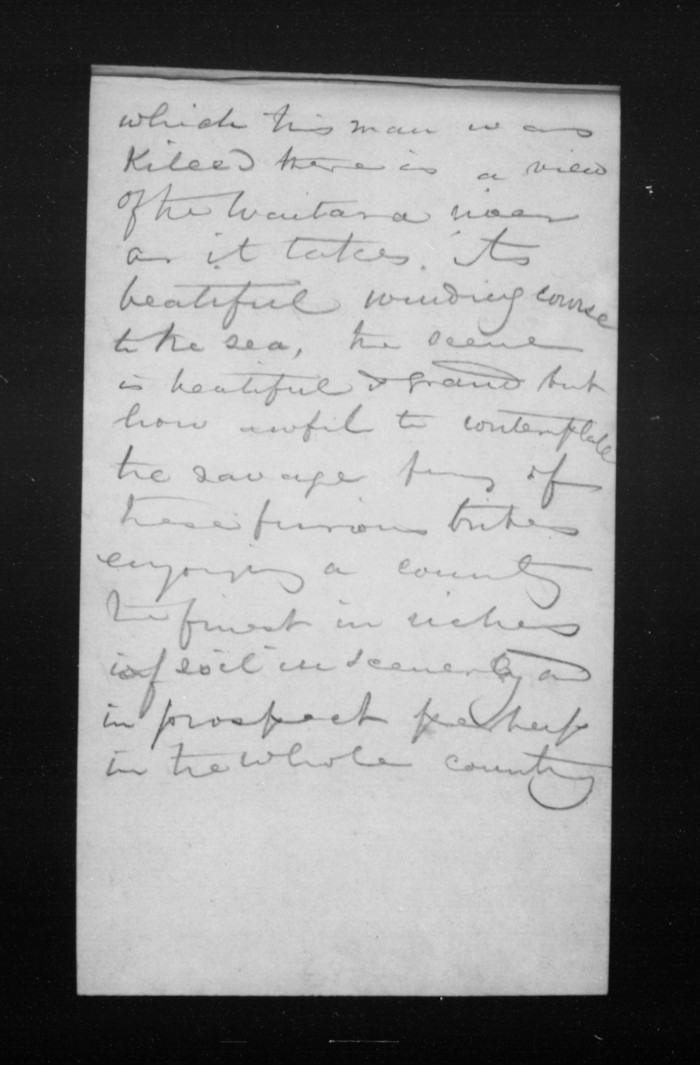 which this man was
Killed there is a view
of the Waitara river
as it takes its
beatiful winding course
to the sea, the scene
is beatiful & grand but
how awful to contemplate
the savage fury of
these furious tribes
enjoying a country
the finest in riches
of soil in scenery and
in prospect perhaps
in the whole country